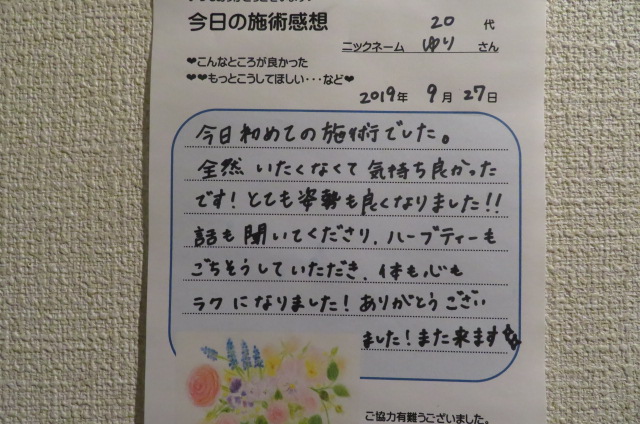 今日の施術感想
20 代
ニックネーム ゆり さん
❤こんなところが良かった
❤❤もっとこうしてほしい・・・など❤
2019年 9月 27日
今日初めての施術でした。
全然いたくなくて気持ち良かった
です!とても姿勢も良くなりました!!
話も聞いてくださり、ハーブティーも
ごちそうしていただき、体も心も
ラクになりました!ありがとうござい
ました!また来ます
ご協力有難うございました。